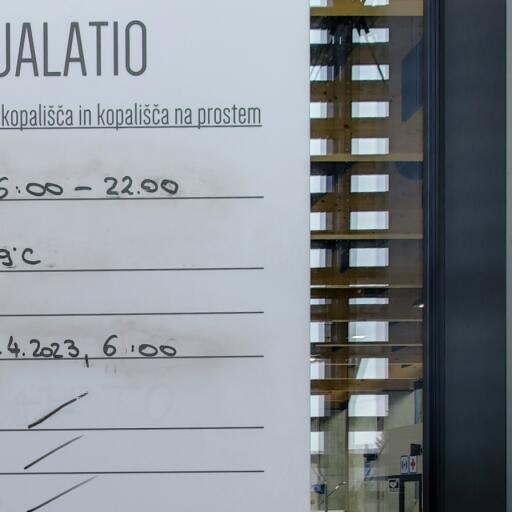 UALATIO
kopališča in kopališča na prostem
6:00 - 22.00
9°C
.4.2023, 6:00